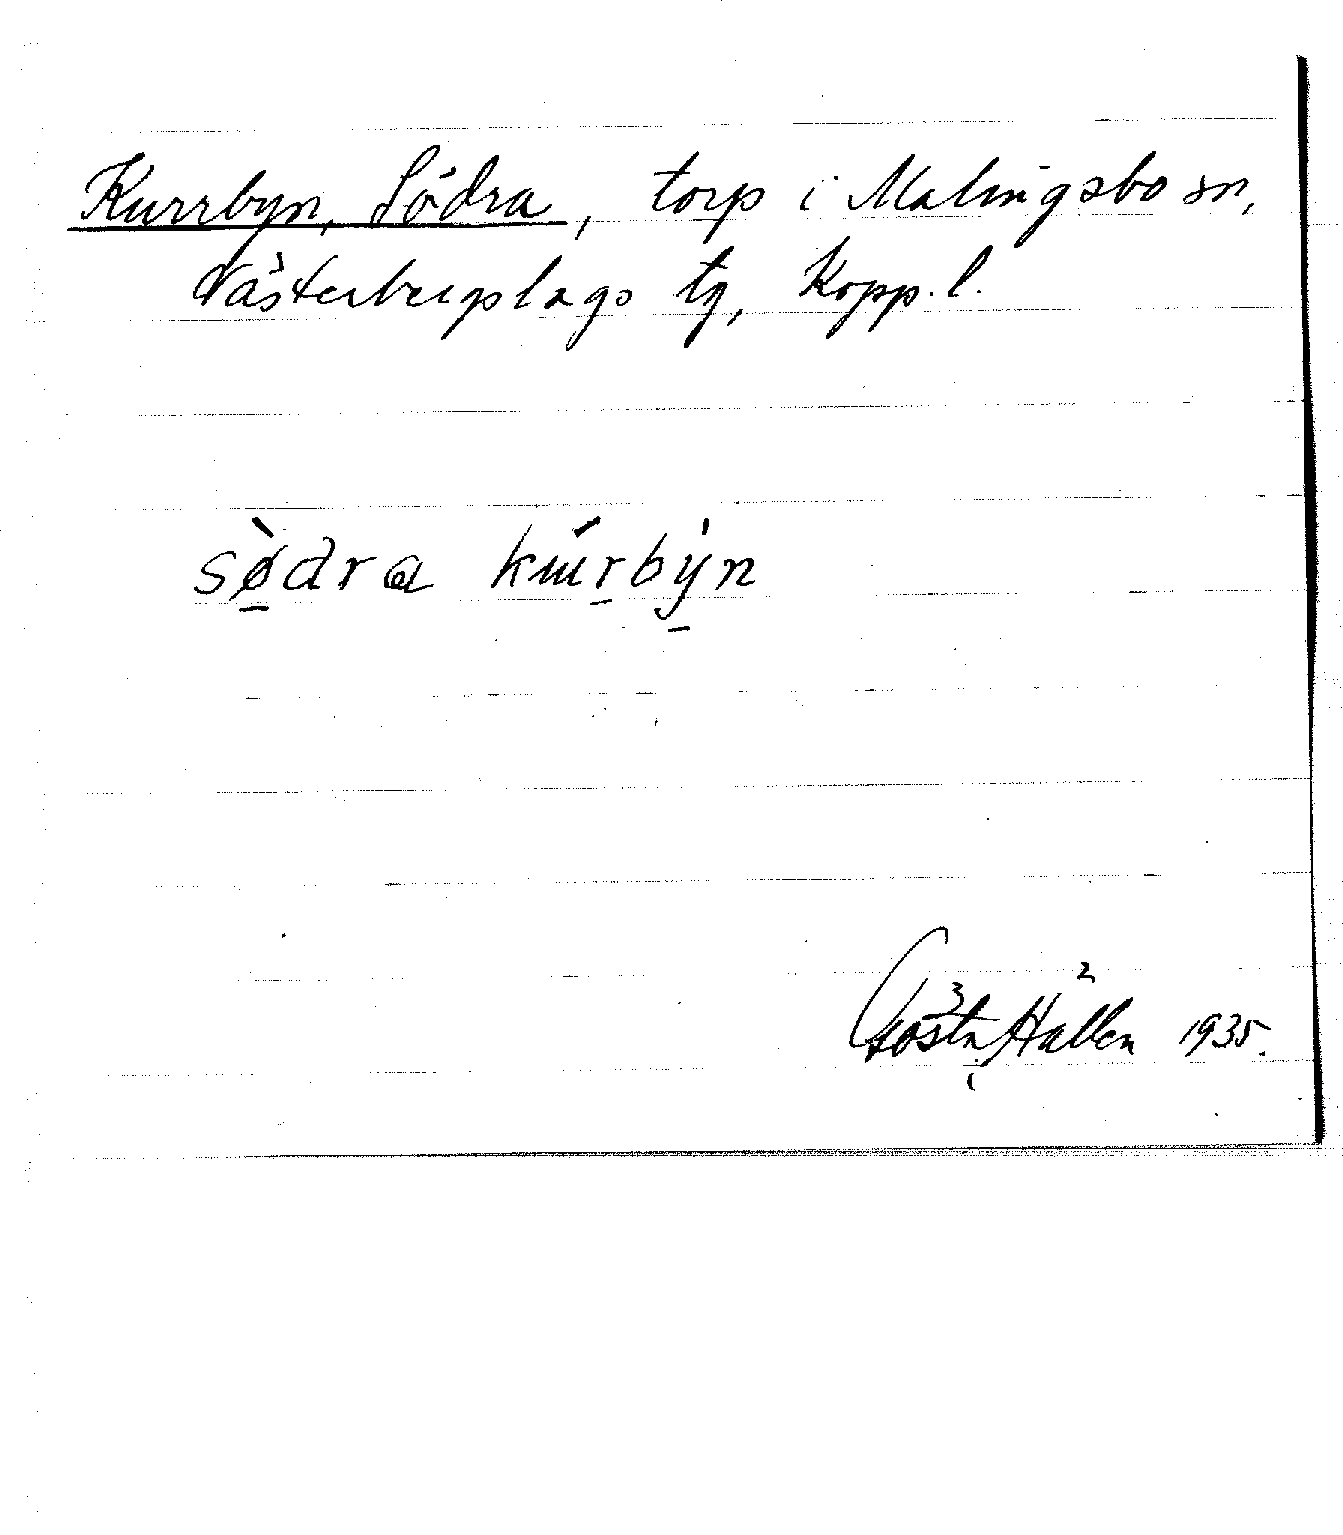 Kurrbyn, Södra, torp i Malingsbo sn,
Västerbergslags tg, Kopp. l.
sø̠̀dra kúr̠bẏ̠n
Gösta Hallen 1935.